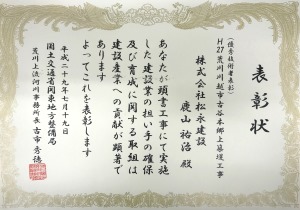 表彰状
(優秀技術者表彰)
H27荒川川越市古谷本郷上築堤工事
株式会社松永建設
鹿山裕治 殿
あなたが頭書工事にて実施
した建設業の担い手の確保
及び育成に関する取組は
建設産業への貢献が顕著で
あります
よってこれを表彰します
平成二十九年七月十九日
国土交通省関東地方整備局
荒川上流河川事務所長 古市秀徳